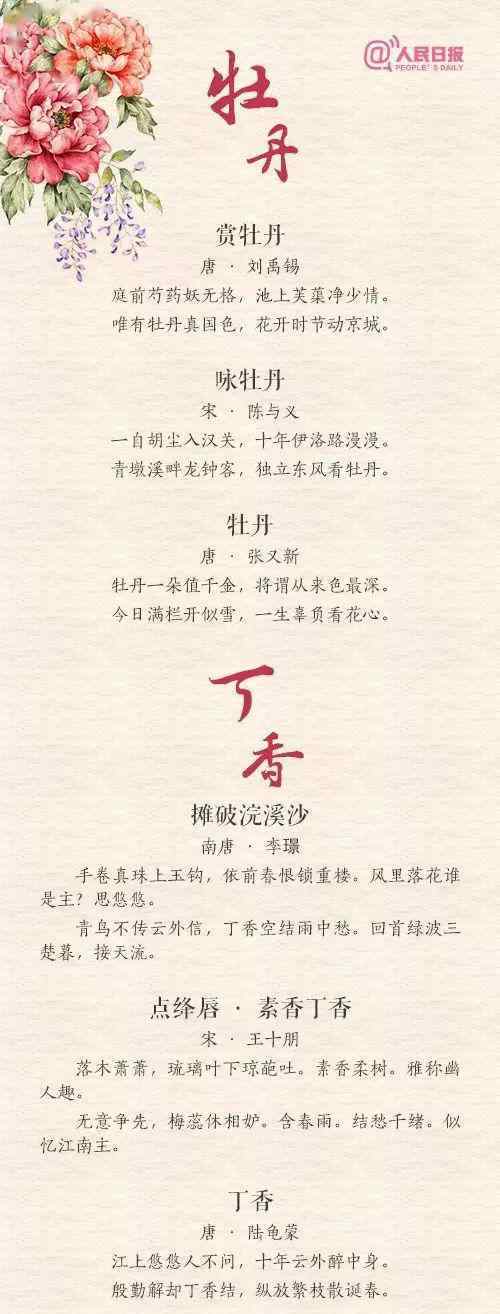 @人民日报
PEOPLE'S DAILY
牡丹
赏牡丹
唐 · 刘禹锡
庭前芍药妖无格，池上芙蕖净少情。
唯有牡丹真国色，花开时节动京城。
咏牡丹
宋 · 陈与义
一自胡尘入汉关，十年伊洛路漫漫。
青墩溪畔龙钟客，独立东风看牡丹。
牡丹
唐 · 张又新
牡丹一朵值千金，将谓从来色最深。
今日满栏开似雪，一生辜负看花心。
丁香
摊破浣溪沙
南唐 · 李璟
手卷真珠上玉钩，依前春恨锁重楼。风里落花谁
是主？思悠悠。
青鸟不传云外信，丁香空结雨中愁。回首绿波三
楚暮，接天流。
点绛唇 · 素香丁香
宋 · 王十朋
落木萧萧，琉璃叶下琼葩吐。素香柔树。雅称幽
人趣。
无意争先，梅蕊休相妒。含春雨。结愁千绪。似
忆江南主。
丁香
唐 · 陆龟蒙
江上悠悠人不问，十年云外醉中身。
殷勤解却丁香结，纵放繁枝散诞春。